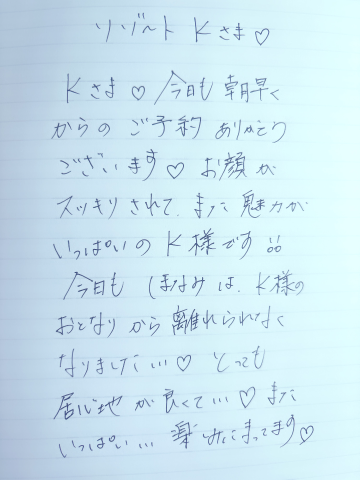 リゾート Kさま♡
Kさま♡今日も朝早く
からのご予約ありがとう
ございます♡お顔が
スッキリされて、また魅力が
いっぱいのK様です
今日もほなみは、K様の
おとなりから離れられなく
なりました…♡とっても
居心地が良くて…♡また
いっぱい…楽しみにまってます♡